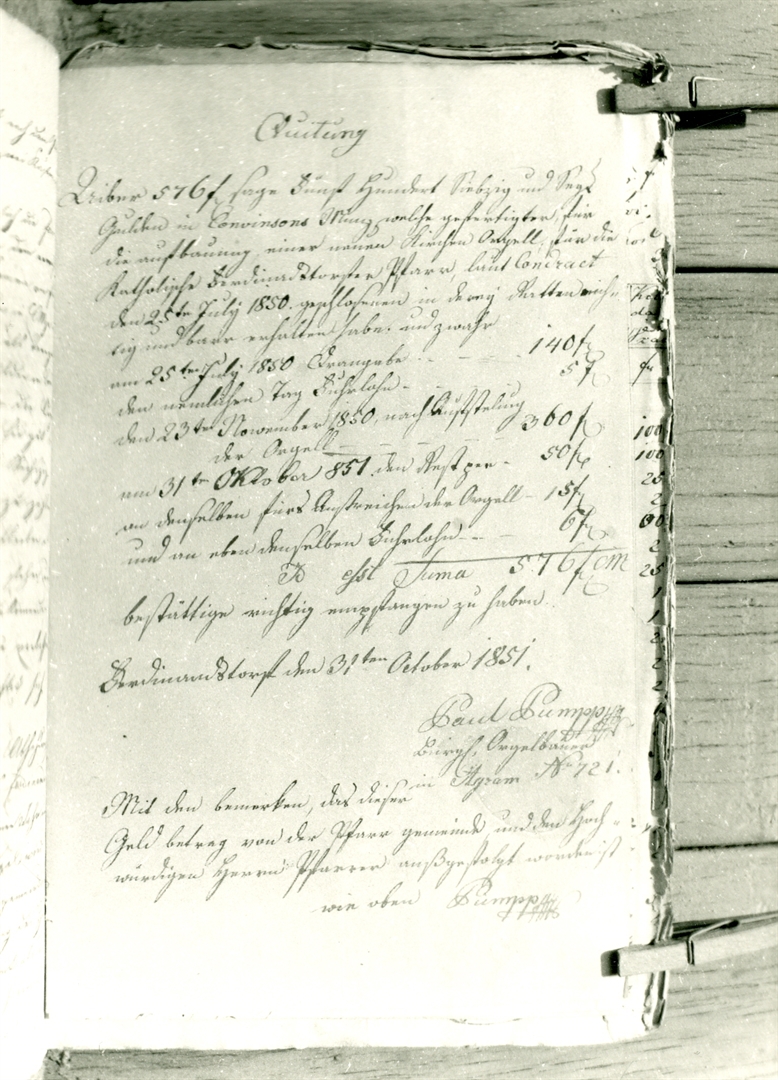 Quitung
Uiber 576 f sage Fünf Hundert Siebzig und Sechs
Gulden in Convinsons Münz, welche gefertigter für
die aufbauung einer neuen Kirchen Orgell, für die
Katholische Ferdinandstorfer Pfarr, laut Contract
den 25te July 1850. geschlossenen in Ratten rich-
tig und baar erhalten habe. und zwahr
am 25ten July 1850 Drangabe. - - 140 f
den nemlichen Tag Fuhrlohn - 5 f
den 23ten November 1850, nach Aufstelung
der Orgell - - - 360 f
am 31te Oktober 851. den Rest per - 50 f
an denselben fürs Anstreichen der Orgell - 15 f
und an eben denselben Fuhrlohn - - 6 f
Suma 576 f Cm
bestättige richtig empfangen zu haben.
Ferdinandstorf den 31ten October 1851.
Paul Pumpp
Bürgl. Orgelbauer
in Agram No 721.
Mit den bemerken, das dieser
Geld betrag von der Pfarr gemeinde und den Hoch-
würdigen Herrn Pfarrer außgefolgt worden ist
wie oben Pumpp
100
100
25
2
60
2
25
1
1
2
2
2